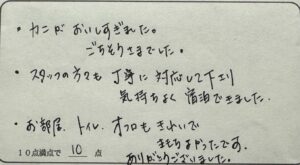 ・カニが おいしすぎました。
ごちそうさまでした。
・スタッフの方々も 丁寧に 対応して下さり
気持ちよく 宿泊できました。
・お部屋、トイレ、オフロも きれいで
とてもよかったです。
10点満点で 10 点
ありがとうございました。